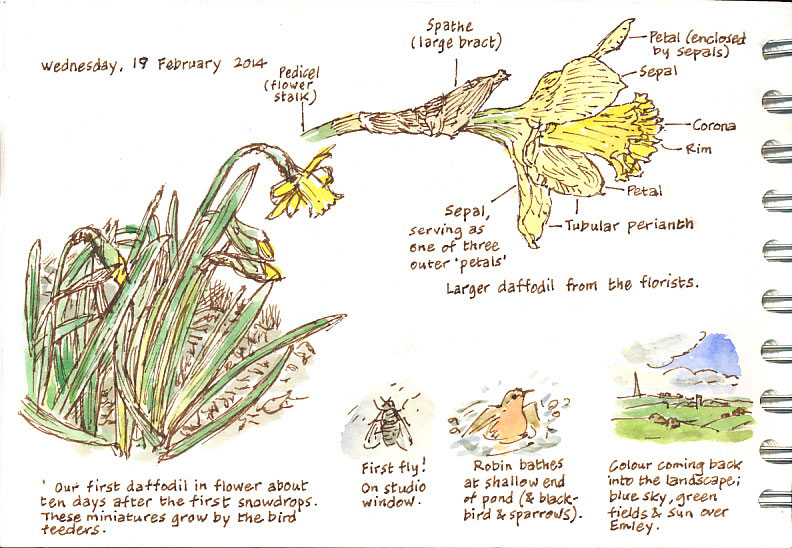 Wednesday, 19 February 2014
Pedicel
(flower
stalk)
Spathe
(large bract)
Petal (enclosed
by sepals)
Sepal
Corona
Rim
Petal
Tubular perianth
Sepal,
serving as
one of three
outer 'petals'
Larger daffodil from the florists.
' Our first daffodil in flower about
ten days after the first snowdrops.
These miniatures grow by the bird
feeders.
First fly!
On studio
window.
Robin bathes
at shallow end
of pond (& black-
bird & sparrows).
Colour coming back
into the landscape;
blue sky, green
fields & sun over
Emley.